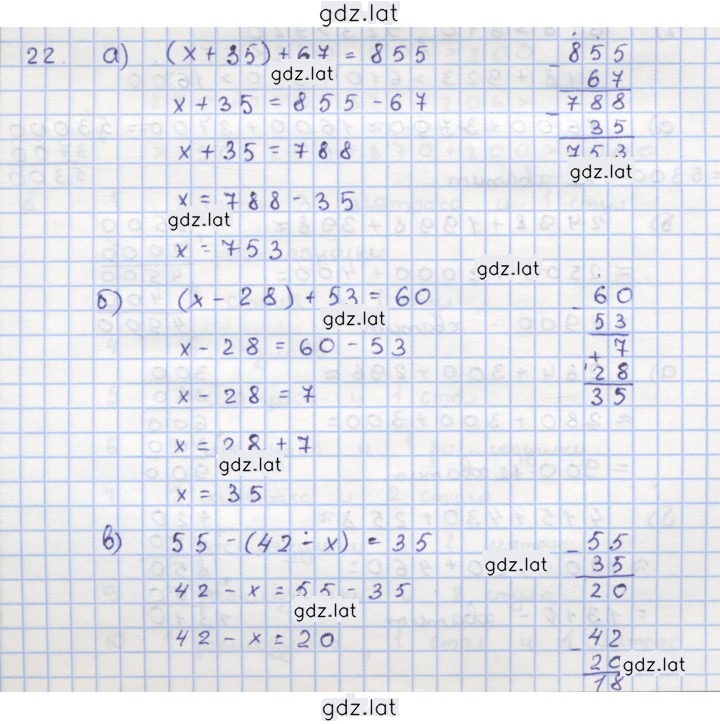 gdz.lat
22. а) (x + 35) + 67 = 855
855
- 67
788
gdz.lat
x + 35 = 855 - 67
- 35
753
x + 35 = 788
gdz.lat
x = 788 - 35
gdz.lat
x = 753
gdz.lat
б) (x - 28) + 53 = 60
- 60
53
7
gdz.lat
x - 28 = 60 - 53
+ 28
35
x - 28 = 7
x = 28 + 7
gdz.lat
x = 35
в) 55 - (42 - x) = 35
- 55
35
20
gdz.lat
42 - x = 55 - 35
gdz.lat
42 - x = 20
- 42
20
18
gdz.lat
gdz.lat